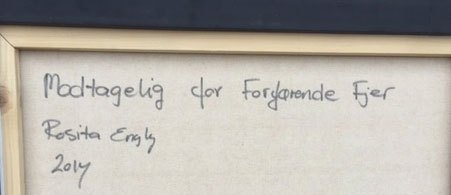 Modtagelig for Forførende Fjer
Rosita Engly
2014